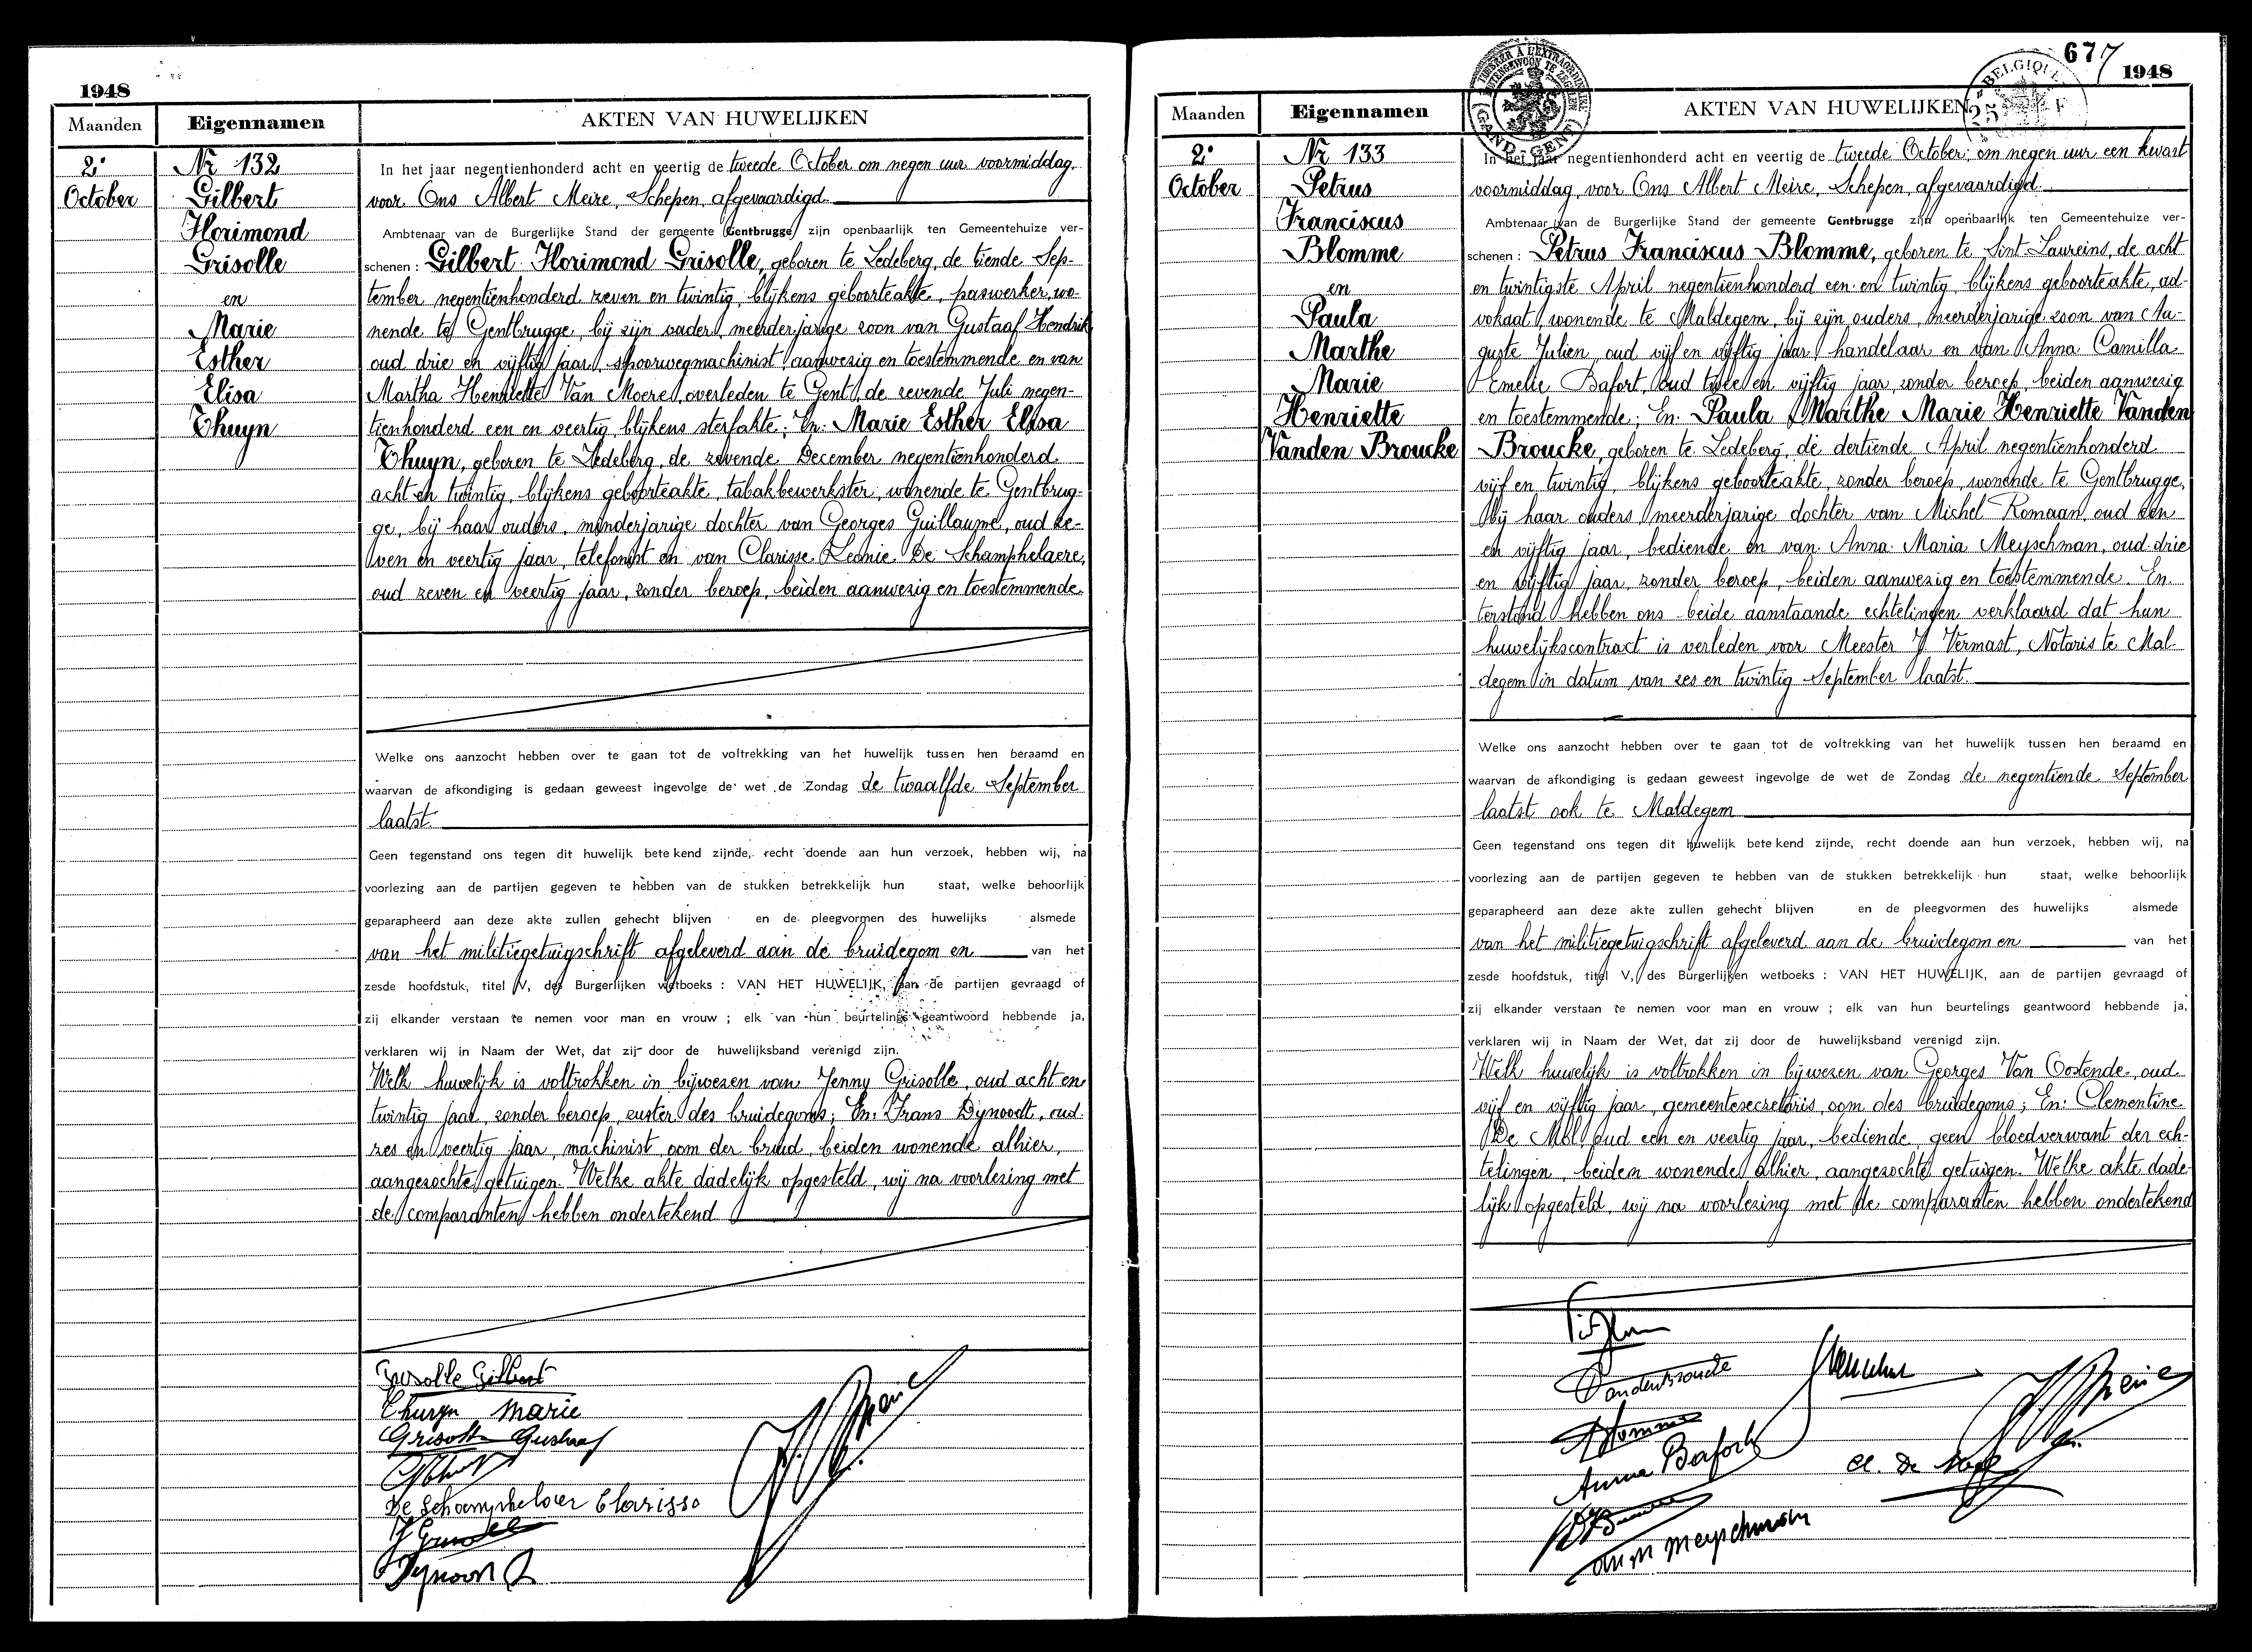 1948
Maanden
Eigennamen
AKTEN VAN HUWELIJKEN
2e
October
Nr 132
Gilbert
Florimond
Grisolle
en
Marie
Esther
Elisa
Thuyn
In het jaar negentienhonderd acht en veertig de tweede October om negen uur voormiddag,
voor Ons Albert Meire, Schepen, afgevaardigd.
Ambtenaar van de Burgerlijke Stand der gemeente Gentbrugge zijn openbaarlijk ten Gemeentehuize ver-
schenen : Gilbert Florimond Grisolle, geboren te Ledeberg, de tiende Sep-
tember negentienhonderd zeven en twintig, blijkens geboorteakte, paswerker, wo-
nende te Gentbrugge, bij zijn vader, meerderjarige zoon van Gustaaf Hendrik
oud drie en vijftig jaar, spoorwegmachinist, aanwezig en toestemmende en van
Martha Henriette Van Moere, overleden te Gent, de zevende Juli negen-
tienhonderd een en veertig, blijkens sterfakte; En: Marie Esther Elisa
Thuyn, geboren te Ledeberg, de zevende December negentienhonderd
acht en twintig, blijkens geboorteakte, tabakbewerkster, wonende te Gentbrug-
ge, bij haar ouders, minderjarige dochter van Georges Guillaume, oud ze-
ven en veertig jaar, telefonist en van Clarisse Leonie De Schamphelaere,
oud zeven en veertig jaar, zonder beroep, beiden aanwezig en toestemmende.
Welke ons aanzocht hebben over te gaan tot de voltrekking van het huwelijk tussen hen beraamd en
waarvan de afkondiging is gedaan geweest ingevolge de wet de Zondag de twaalfde September
laatst.
Geen tegenstand ons tegen dit huwelijk betekend zijnde, recht doende aan hun verzoek, hebben wij, na
voorlezing aan de partijen gegeven te hebben van de stukken betrekkelijk hun staat, welke behoorlijk
geparapheerd aan deze akte zullen gehecht blijven en de pleegvormen des huwelijks alsmede
van het militiegetuigschrift afgeleverd aan de bruidegom en van het
zesde hoofdstuk, titel V, des Burgerlijken wetboeks : VAN HET HUWELIJK, aan de partijen gevraagd of
zij elkander verstaan te nemen voor man en vrouw ; elk van hun beurtelings geantwoord hebbende ja,
verklaren wij in Naam der Wet, dat zij door de huwelijksband verenigd zijn.
Welk huwelijk is voltrokken in bijwezen van Jenny Grisolle, oud acht en
twintig jaar, zonder beroep, zuster des bruidegoms; En: Frans Dynoodt, oud
zes en veertig jaar, machinist, oom der bruid, beiden wonende alhier,
aangezochte getuigen. Welke akte dadelijk opgesteld, wij na voorlezing met
de comparanten hebben ondertekend
Grisolle Gilbert
Thuyn Marie
Grisolle Gustaaf
De Schamphelaer Clarisse
J Grisolle
677
1948
TIMBRE A L'EXTRAORDINAIRE
BUITENGEWOON TE ZEGELEN
(GAND-GENT)
BELGIQUE
25 F
Maanden
Eigennamen
AKTEN VAN HUWELIJKEN
2e
October
Nr 133
Petrus
Franciscus
Blomme
en
Paula
Marthe
Marie
Henriette
Vanden Broucke
In het jaar negentienhonderd acht en veertig de tweede October, om negen uur een kwart
voormiddag, voor Ons Albert Meire, Schepen, afgevaardigd.
Ambtenaar van de Burgerlijke Stand der gemeente Gentbrugge zijn openbaarlijk ten Gemeentehuize ver-
schenen : Petrus Franciscus Blomme, geboren te Sint Laureins, de acht
en twintigste April negentienhonderd een en twintig, blijkens geboorteakte, ad-
vokaat, wonende te Maldegem, bij zijn ouders, meerderjarige zoon van Au-
guste Julien, oud vijf en vijftig jaar, handelaar en van Anna Camilla
Emelie Bafort, oud twee en vijftig jaar, zonder beroep, beiden aanwezig
en toestemmende; En: Paula Marthe Marie Henriette Vanden
Broucke, geboren te Ledeberg, de dertiende April negentienhonderd
vijf en twintig, blijkens geboorteakte, zonder beroep, wonende te Gentbrugge,
bij haar ouders, meerderjarige dochter van Michel Romaan, oud een
en vijftig jaar, bediende en van Anna Maria Meyschman, oud drie
en vijftig jaar, zonder beroep, beiden aanwezig en toestemmende. En
terstond hebben ons beide aanstaande echtelingen verklaard dat hun
huwelijkscontract is verleden voor Meester J Vermast, Notaris te Mal-
degem in datum van zes en twintig September laatst.
Welke ons aanzocht hebben over te gaan tot de voltrekking van het huwelijk tussen hen beraamd en
waarvan de afkondiging is gedaan geweest ingevolge de wet de Zondag de negentiende September
laatst ook te Maldegem
Geen tegenstand ons tegen dit huwelijk betekend zijnde, recht doende aan hun verzoek, hebben wij, na
voorlezing aan de partijen gegeven te hebben van de stukken betrekkelijk hun staat, welke behoorlijk
geparapheerd aan deze akte zullen gehecht blijven en de pleegvormen des huwelijks alsmede
van het militiegetuigschrift afgeleverd aan de bruidegom en van het
zesde hoofdstuk, titel V, des Burgerlijken wetboeks : VAN HET HUWELIJK, aan de partijen gevraagd of
zij elkander verstaan te nemen voor man en vrouw ; elk van hun beurtelings geantwoord hebbende ja,
verklaren wij in Naam der Wet, dat zij door de huwelijksband verenigd zijn.
Welk huwelijk is voltrokken in bijwezen van Georges Van Oostende, oud
vijf en vijftig jaar, gemeentesecretaris, oom des bruidegoms; En: Clementine
De Mol, oud een en veertig jaar, bediende, geen bloedverwant der ech-
telingen, beiden wonende alhier, aangezochte getuigen. Welke akte dade-
lijk opgesteld, wij na voorlezing met de comparanten hebben ondertekend
Vandenbroucke
Blomme
Anna Bafort
Cl. De Mol
Meyschman